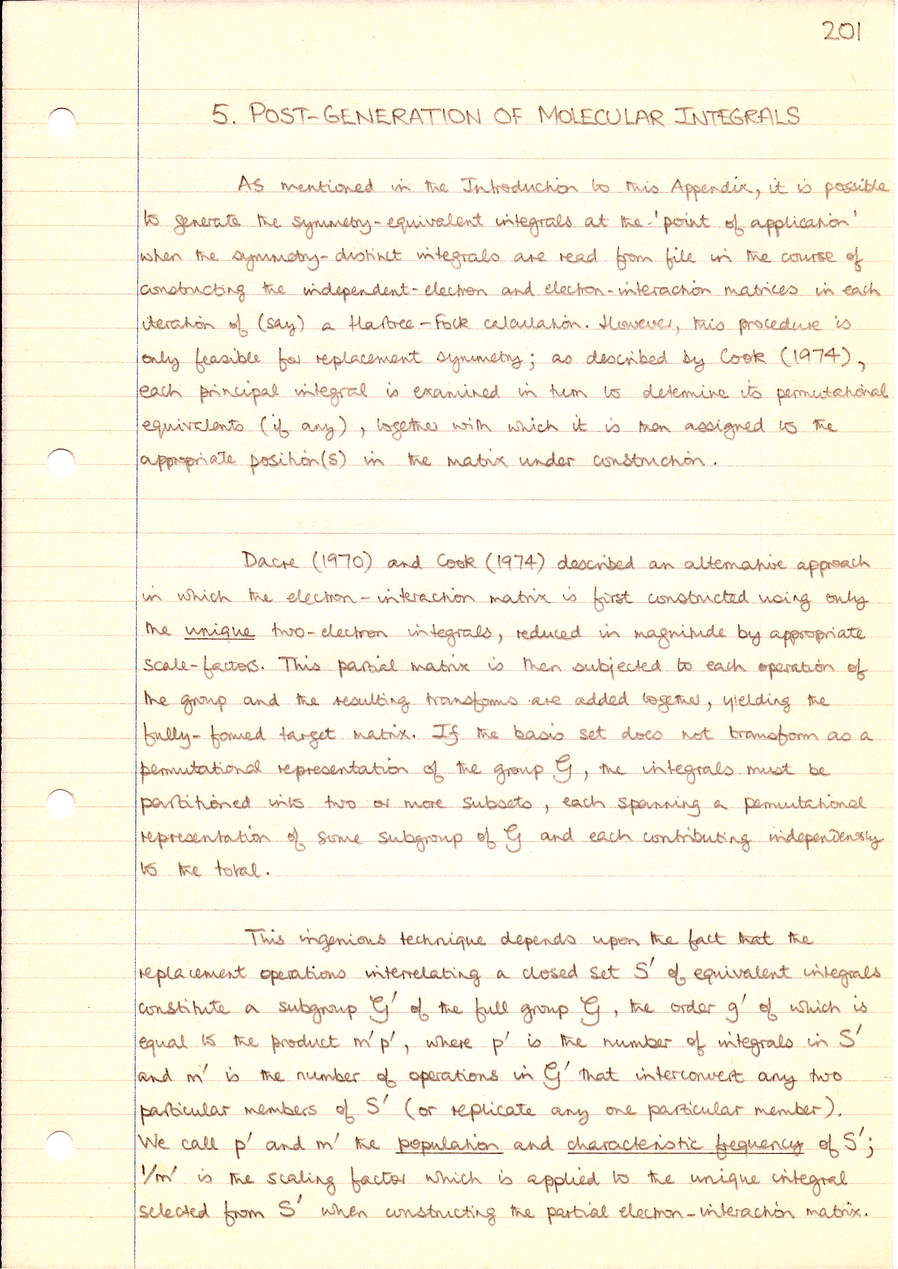 201
5. POST-GENERATION OF MOLECULAR INTEGRALS
As mentioned in the Introduction to this Appendix, it is possible
to generate the symmetry-equivalent integrals at the 'point of application'
when the symmetry-distinct integrals are read from file in the course of
constructing the independent-electron and electron-interaction matrices in each
iteration of (say) a Hartree-Fock calculation. However, this procedure is
only feasible for replacement symmetry; as described by Cook (1974),
each principal integral is examined in turn to determine its permutational
equivalents (if any), together with which it is then assigned to the
appropriate position(s) in the matrix under construction.
Dacre (1970) and Cook (1974) described an alternative approach
in which the electron-interaction matrix is first constructed using only
the unique two-electron integrals, reduced in magnitude by appropriate
scale-factors. This partial matrix is then subjected to each operation of
the group and the resulting transforms are added together, yielding the
fully-formed target matrix. If the basis set does not transform as a
permutational representation of the group G, the integrals must be
partitioned into two or more subsets, each spanning a permutational
representation of some subgroup of G and each contributing independently
to the total.
This ingenious technique depends upon the fact that the
replacement operations interrelating a closed set S' of equivalent integrals
constitute a subgroup G' of the full group G, the order g' of which is
equal to the product m'p', where p' is the number of integrals in S'
and m' is the number of operations in G' that interconvert any two
particular members of S' (or replicate any one particular member).
We call p' and m' the population and characteristic frequency of S';
1/m' is the scaling factor which is applied to the unique integral
selected from S' when constructing the partial electron-interaction matrix.